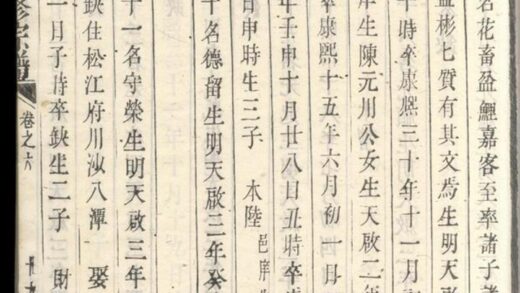 名花畜盈鯉嘉客至率諸子
彬匕質有其文焉生明天啟
時卒康熙三十年十一月
生陳元川公女生天啟二年
卒康熙十五年六月初一日
年壬申十月廿八日丑時卒
日申時生三子 本陸 邑庠
十名德留生明天啟三年癸
十一名守榮生明天啟三年
缺住松江府川沙八潭 娶
一日子時卒缺生二子 財
宗譜 卷之六